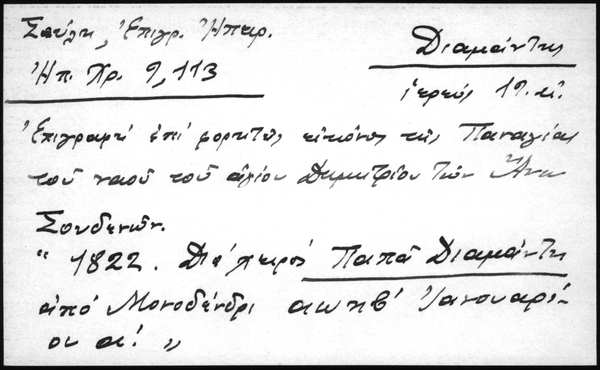 Σούλη, Ἐπιγρ. Ἠπειρ.
Ἠπ. Χρ. 9, 113
Διαμάντης
ἱερεύς 19. αἰ.
Ἐπιγραφή ἐπί φορητῆς εἰκόνος τῆς Παναγίας
τοῦ ναοῦ τοῦ ἁγίου Δημητρίου τῶν Ἄνω
Σουδενῶν.
" 1822. Διά χειρός Παπᾶ Διαμάντη
ἀπό Μονοδένδρι αωκβ' Ἰανουαρί-
ου α! "